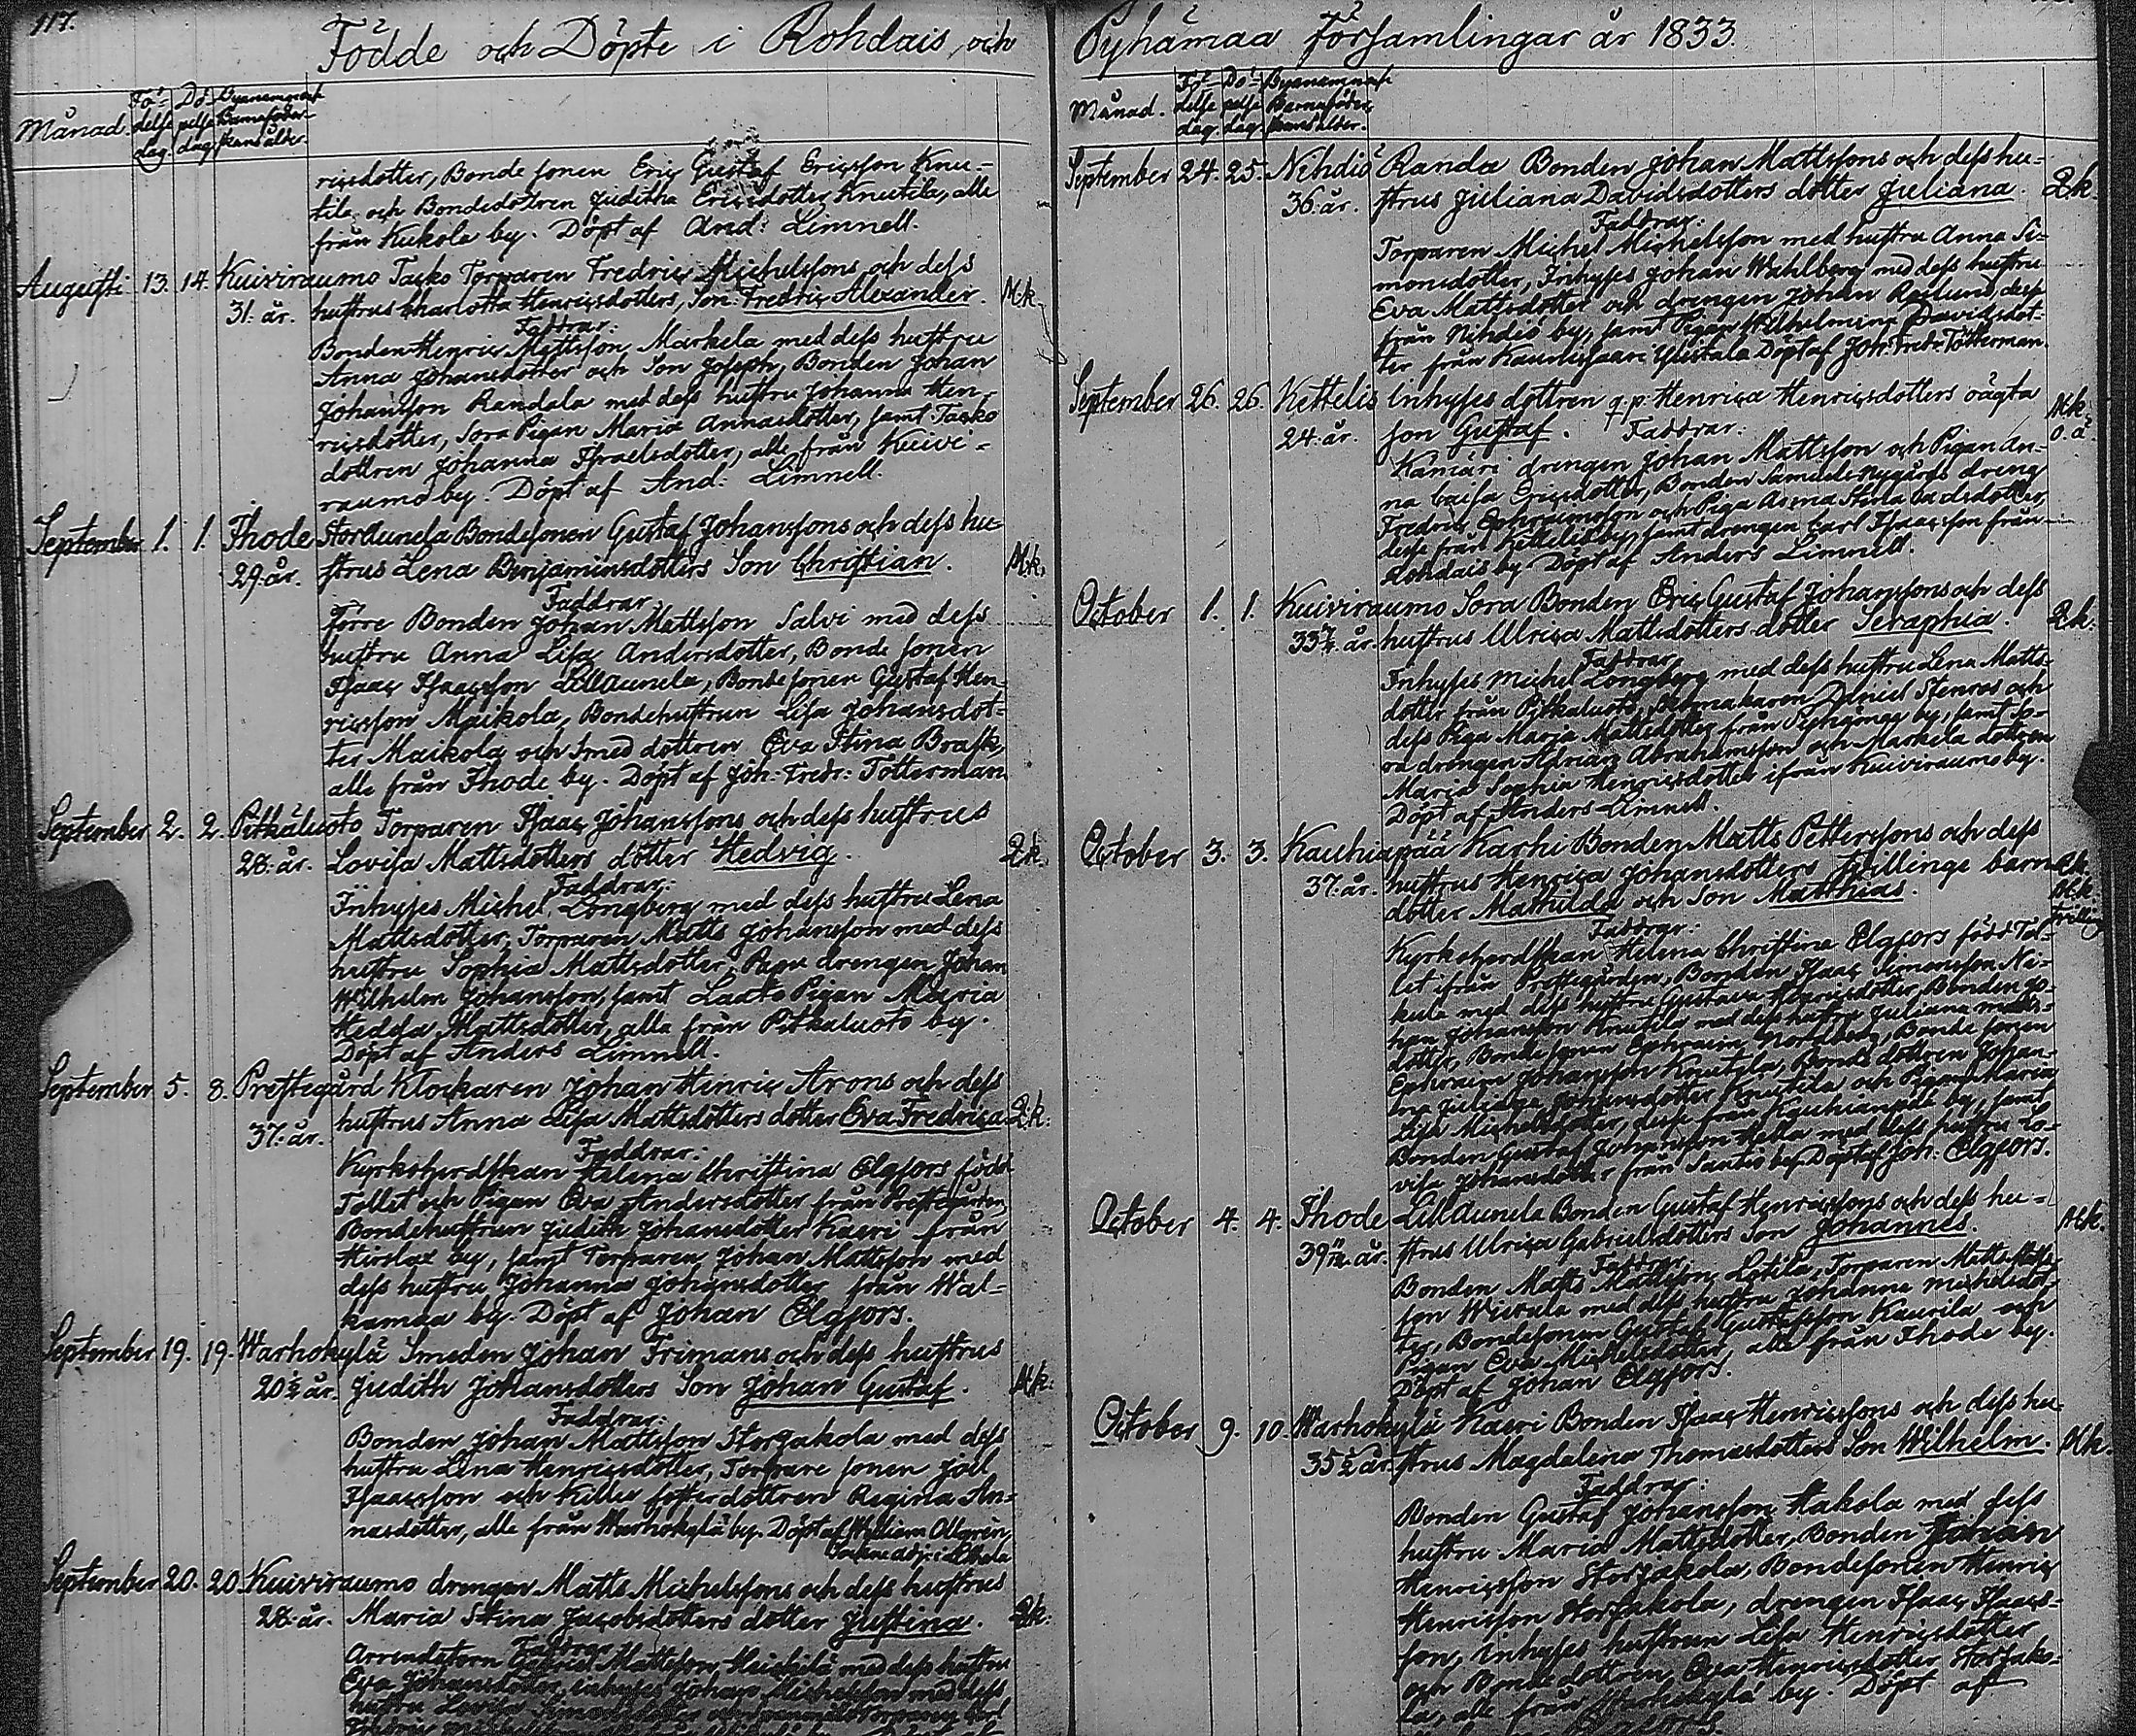 117.
Födde och Döpte i Rohdais och
Månad. Fö- Dö- Byanamn och
delse pelse Barnaföder-
dag. dag. skans ålder.
ricsdotter, Bonde sonen Eric Gustaf Ericsson Knu-
tila och Bondedottren Juditha Ericsdotter Knutila, alla
från Kukola by. Döpt af And: Limnell.
Augusti 13. 14. Kuiviraumo Tasko Torparen Fredric Michelssons och dess
31. år. hustrus Charlotta Henricsdotters, Son: Fredric Alexander. M.k.
Faddrar:
Bonden Henric Mattsson Markela med dess hustru
Anna Johansdotter och Son Joseph, Bonden Johan
Johansson Randala med dess hustru Johanna Hen-
ricsdotter, Sora Pigan Maria Annasdotter, samt Tasko
dottren Johanna Israelsdotter, alla från Kuivi-
raumo by. Döpt af And: Limnell.
September 1. 1. Ihode StorAunela Bondesonen Gustaf Johanssons och dess hu-
29. år. strus Lena Benjaminsdotters Son Christian. M.k.
Faddrar.
Förre Bonden Johan Mattsson Salvi med dess
hustru Anna Lisa Andersdotter, Bonde sonen
Isaac Isaacsson LillAunela, Bonde sonen Gustaf Hen-
ricsson Maikola, Bondehustrun Lisa Johansdot-
ter Maikola och Smed dottren Eva Stina Brask,
alla från Ihode by. Döpt af Joh: Fredr: Tötterman.
September 2. 2. Pitkäluoto Torparen Isaac Johanssons och dess hustrus
28. år. Lovisa Mattsdotters dotter Hedvig. Q.k.
Faddrar:
Inhyses Michel Longberg med dess hustru Lena
Mattsdotter, Torparen Matts Johansson med dess
hustru Sophia Mattsdotter, Papu drengen Johan
Wilhelm Johansson, samt Laato Pigan Maria
Hedda Mattsdotter, alla från Pitkaluoto by.
Döpt af Anders Limnell.
September 5. 8. Prestegård Klockaren Johan Hinric Arons och dess
37. år. hustrus Anna Lisa Mattsdotters dotter Eva Fredrica. Q.k.
Faddrar:
Kyrkoherdskan Helena Christina Elgfors född
Tollet och Pigan Eva Andersdotter från Prestegården,
Bondehustrun Judith Johansdotter Kaeri från
Hirslax by, samt Torparen Johan Mattsson med
dess hustru Johanna Johansdotter från Wal-
kamaa by. Döpt af Johan Elgfors.
September 19. 19. Warhokylä Smeden Johan Frimans och dess hustrus
20½ år. Judith Johansdotters Son Johan Gustaf. M.k.
Faddrar:
Bonden Johan Mattsson Storjakola med dess
hustru Lena Henricsdotter, Torpare sonen Joel
Isaacsson och Killu fosterdottren Regina An-
nasdotter, alla från Warhokylä by. Döpt af William Ollgren,
September 20. 20. Kuiviraumo drengen Matts Michelssons och dess hustrus
28. år. Maria Stina Jacobsdotters dotter Justina. Q.k.
Faddrar:
Arrendatorn Mattsson Heickilä med dess hustru
Eva Johansdotter, inhyses Johan Michelsson med dess
hustru Lovisa Simonsdotter
Pyhämaa församlingar år 1833.
Månad. Fö- Dö- Byanamn och
delse pelse Barnaföder-
dag. dag. skans ålder.
September 24. 25. Nihdiö Randa Bonden Johan Mattssons och dess hu-
36. år. strus Juliana Davidsdotters dotter Juliana. Q.k.
Faddrar:
Torparen Michel Michelsson med hustru Anna Si-
monsdotter, Inhyses Johan Wahlberg med dess hustru
Eva Mattsdotter och drengen Johan Roslund, desse
från Nihdiö by, samt Pigan Wilhelmina Davidsdot-
ter från Kaunissaari Yliskala Döpt af Joh: Fredr: Tötterman.
September 26. 26. Kettelis Inhyses dottren q.p. Henrica Henricsdotters oägta M.k.
24. år. son Gustaf. Faddrar: o.ä.
Kamari drengen Johan Mattsson och Pigan An-
na Caisa Ericsdotter, Bonden Samuels Nygårds dreng
Fredric Ephraimsson och Piga Anna Stina
desse från Kettelis by, samt drengen Carl Isaacsson från
Rohdais by Döpt af Anders Limnell.
October 1. 1. Kuiviraumo Sora Bonden Eric Gustaf Johanssons och dess
33 år. hustrus Ulrica Mattsdotters dotter Seraphia. Q.k.
Faddrar
Inhyses Michel Longberg med dess hustru Lena Matts-
dotter från Pitkaluoto, Daniel Stenros och
dess Piga Maria Mattsdotter från Pyhämaa by, samt So-
ra drengen Adrian Abrahamsson och Markela dottren
Maria Sophia Henricsdotter ifrån Kuiviraumo by.
Döpt af Anders Limnell.
October 3. 3. Kauhianpää Karhi Bonden Matts Petterssons och dess
37. år. hustrus Henrica Johansdotters Tvillinge barn Q.k.
dotter Mathilda och Son Matthias. M.k.
Tvilling
Faddrar:
Kyrkoherdskan Helena Christina Elgfors född Tol-
let ifrån Prestegården, Bonden Isaac Simonsson Ni-
kula med dess hustru Gustava Henricsdotter, Bonden Jo-
han Johansson Knutila med dess hustru Juliana Matts-
dotter, Bondesonen Ephraim Bonde sonen
Ephraim Johansson Knutila, Bonde dottren Johan-
na Juliana Johansdotter Knutila och Pigan Maria
Lisa Michelsdotter, desse från Kauhianpää by, samt
Bonden Gustaf Johansson Hella med dess hustru Lo-
visa Johansdotter från Santio by. Döpt af Joh: Elgfors.
October 4. 4. Ihode LillAunela Bonden Gustaf Henricssons och dess hu-
39 år. strus Ulrica Gabrielsdotters Son Johannes. M.k.
Faddrar
Bonden Matts Mattsson Lötila, Torparen Matts
son med dess hustru Johanna Michelsdot-
ter, Bondesonen Gustaf Gustafsson Kaurila och
Pigan Eva Michelsdotter, alla från Ihode by.
Döpt af Johan Elgfors.
October 9. 10. Warhokylä Kaeri Bonden Isaac Henricssons och dess hu-
35½ år. strus Magdalena Thomasdotters Son Wilhelm. M.k.
Faddrar:
Bonden Gustaf Johansson Hakola med dess
hustru Maria Mattsdotter, Bonden Johan
Henricsson Storjakola, Bondesonen Henric
Henricsson Storjakola, drengen Isaac Isaacs-
son, inhyses hustrun Lisa Henricsdotter
och Bondedottren Eva Henricsdotter Storjako-
la, alla från Warhokylä by. Döpt af